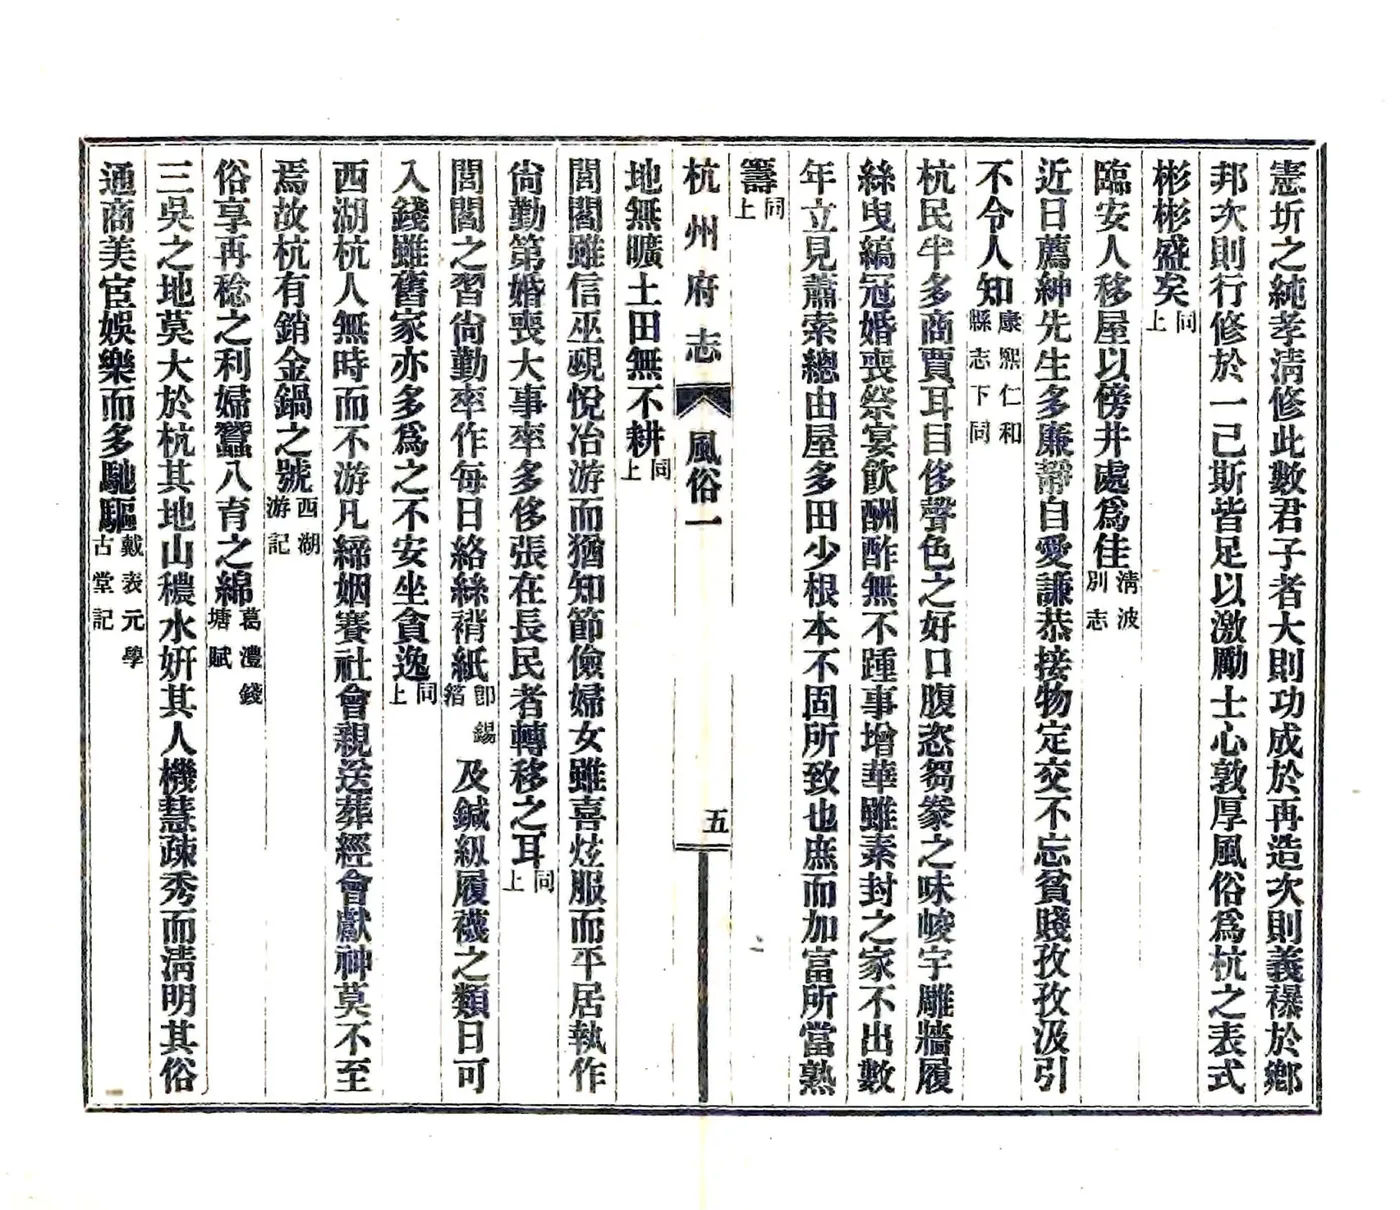 憲圻之純孝清修此數君子者大則功成於再造次則義襮於鄉
邦次則行修於一己斯皆足以激勵士心敦厚風俗爲杭之表式
彬彬盛矣同上
臨安人移屋以傍井處爲佳清波別志
近日薦紳先生多廉幇自愛謙恭接物定交不忘貧賤孜孜汲引
不令人知康熙仁和縣志下同
杭民半多商賈耳目侈聲色之好口腹恣芻豢之味峻宇雕牆履
絲曳縞冠婚喪祭宴飲酬酢無不踵事增華雖素封之家不出數
年立見蕭索總由屋多田少根本不固所致也庶而加富所當熟
籌同上
杭州府志 風俗一 五
地無曠土田無不耕同上
閭閻雖信巫覡悅冶游而猶知節儉婦女雖喜炫服而平居執作
尙勤第婚喪大事率多侈張在長民者轉移之耳同上
閭閻之習尙勤率作每日絡絲褙紙卽錫箔及鍼紉履襪之類日可
入錢雖舊家亦多爲之不安坐貪逸同上
西湖杭人無時而不游凡締姻賽社會親送葬經會獻神莫不至
焉故杭有銷金鍋之號西湖游記
俗享再稔之利婦蠶八育之綿葛澧錢塘賦
三吳之地莫大於杭其地山穠水妍其人機慧疎秀而淸明其俗
通商美宦娛樂而多馳驅戴表元學古堂記